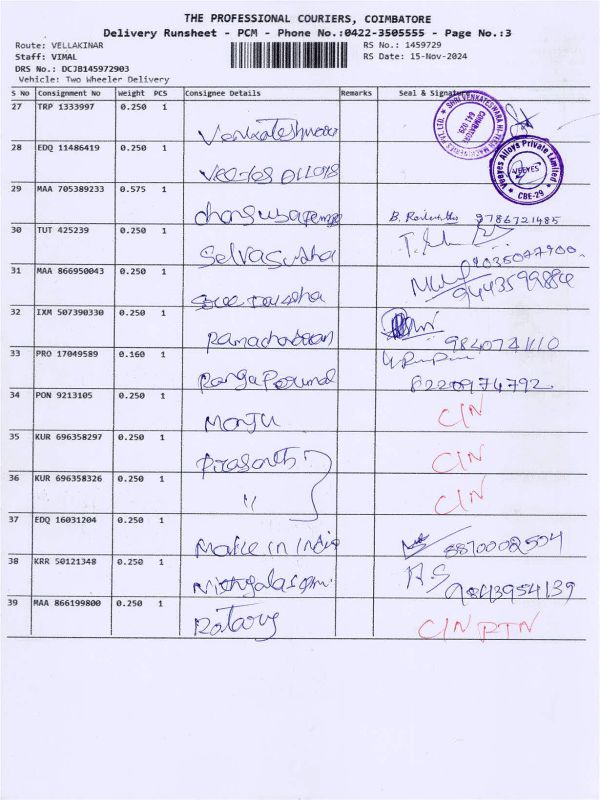 THE PROFESSIONAL COURIERS, COIMBATORE
Delivery Runsheet - PCM - Phone No.:0422-3505555 - Page No.:3
Route: VELLAKINAR RS No.: 1459729
Staff: VIMAL RS Date: 15-Nov-2024
DRS No.: DCJB145972903
Vehicle: Two Wheeler Delivery
S No Consignment No Weight PCS Consignee Details Remarks Seal & Signature
27 TRP 1333997 0.250 1
SHRI VENKATESWARA HI-TECH MACHINERIES PVT. LTD. COIMBATORE 641 029
28 EDQ 11486419 0.250 1
Veeyes Alloys Private Limited VEEYES CBE-29
29 MAA 705389233 0.575 1 9786721485
30 TUT 425239 0.250 1 Selvasudha
31 MAA 866950043 0.250 1
32 IXM 507390330 0.250 1
33 PRO 17049589 0.160 1 Ranga Perumal 8220974792
34 PON 9213105 0.250 1 Manju C/N
35 KUR 696358297 0.250 1 Prasanth C/N
36 KUR 696358326 0.250 1 " C/N
37 EDQ 16031204 0.250 1 Make in India
38 KRR 50121348 0.250 1 9843954139
39 MAA 866199800 0.250 1 Rotary C/N RTN